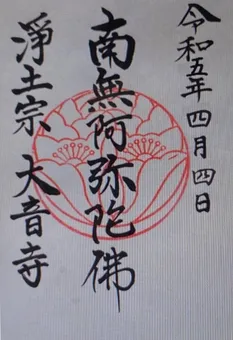 令和五年四月四日
南無阿弥陀佛
浄土宗 大音寺